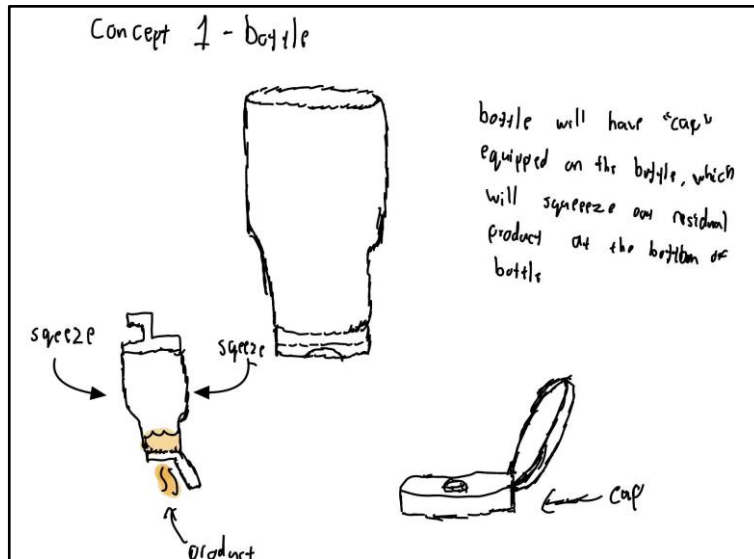 Concept 1 - bottle
bottle will have "cap"
equipped on the bottle, which
will squeeeze out residual
product at the bottom of
bottle
squeeze
squeeze
product
cap